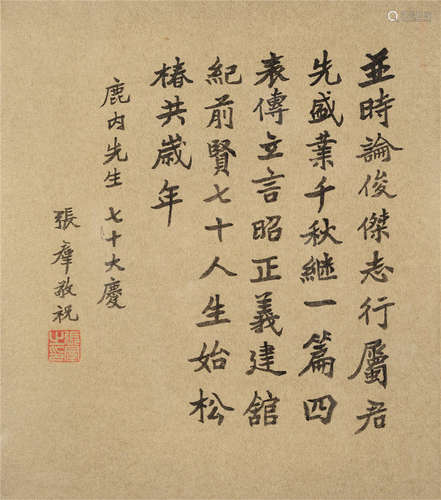 並時論俊傑志行屬君
先盛業千秋繼一篇四
表傳立言昭正義建舘
紀前賢七十人生始松
椿共歲年
鹿内先生七十大慶
張羣敬祝